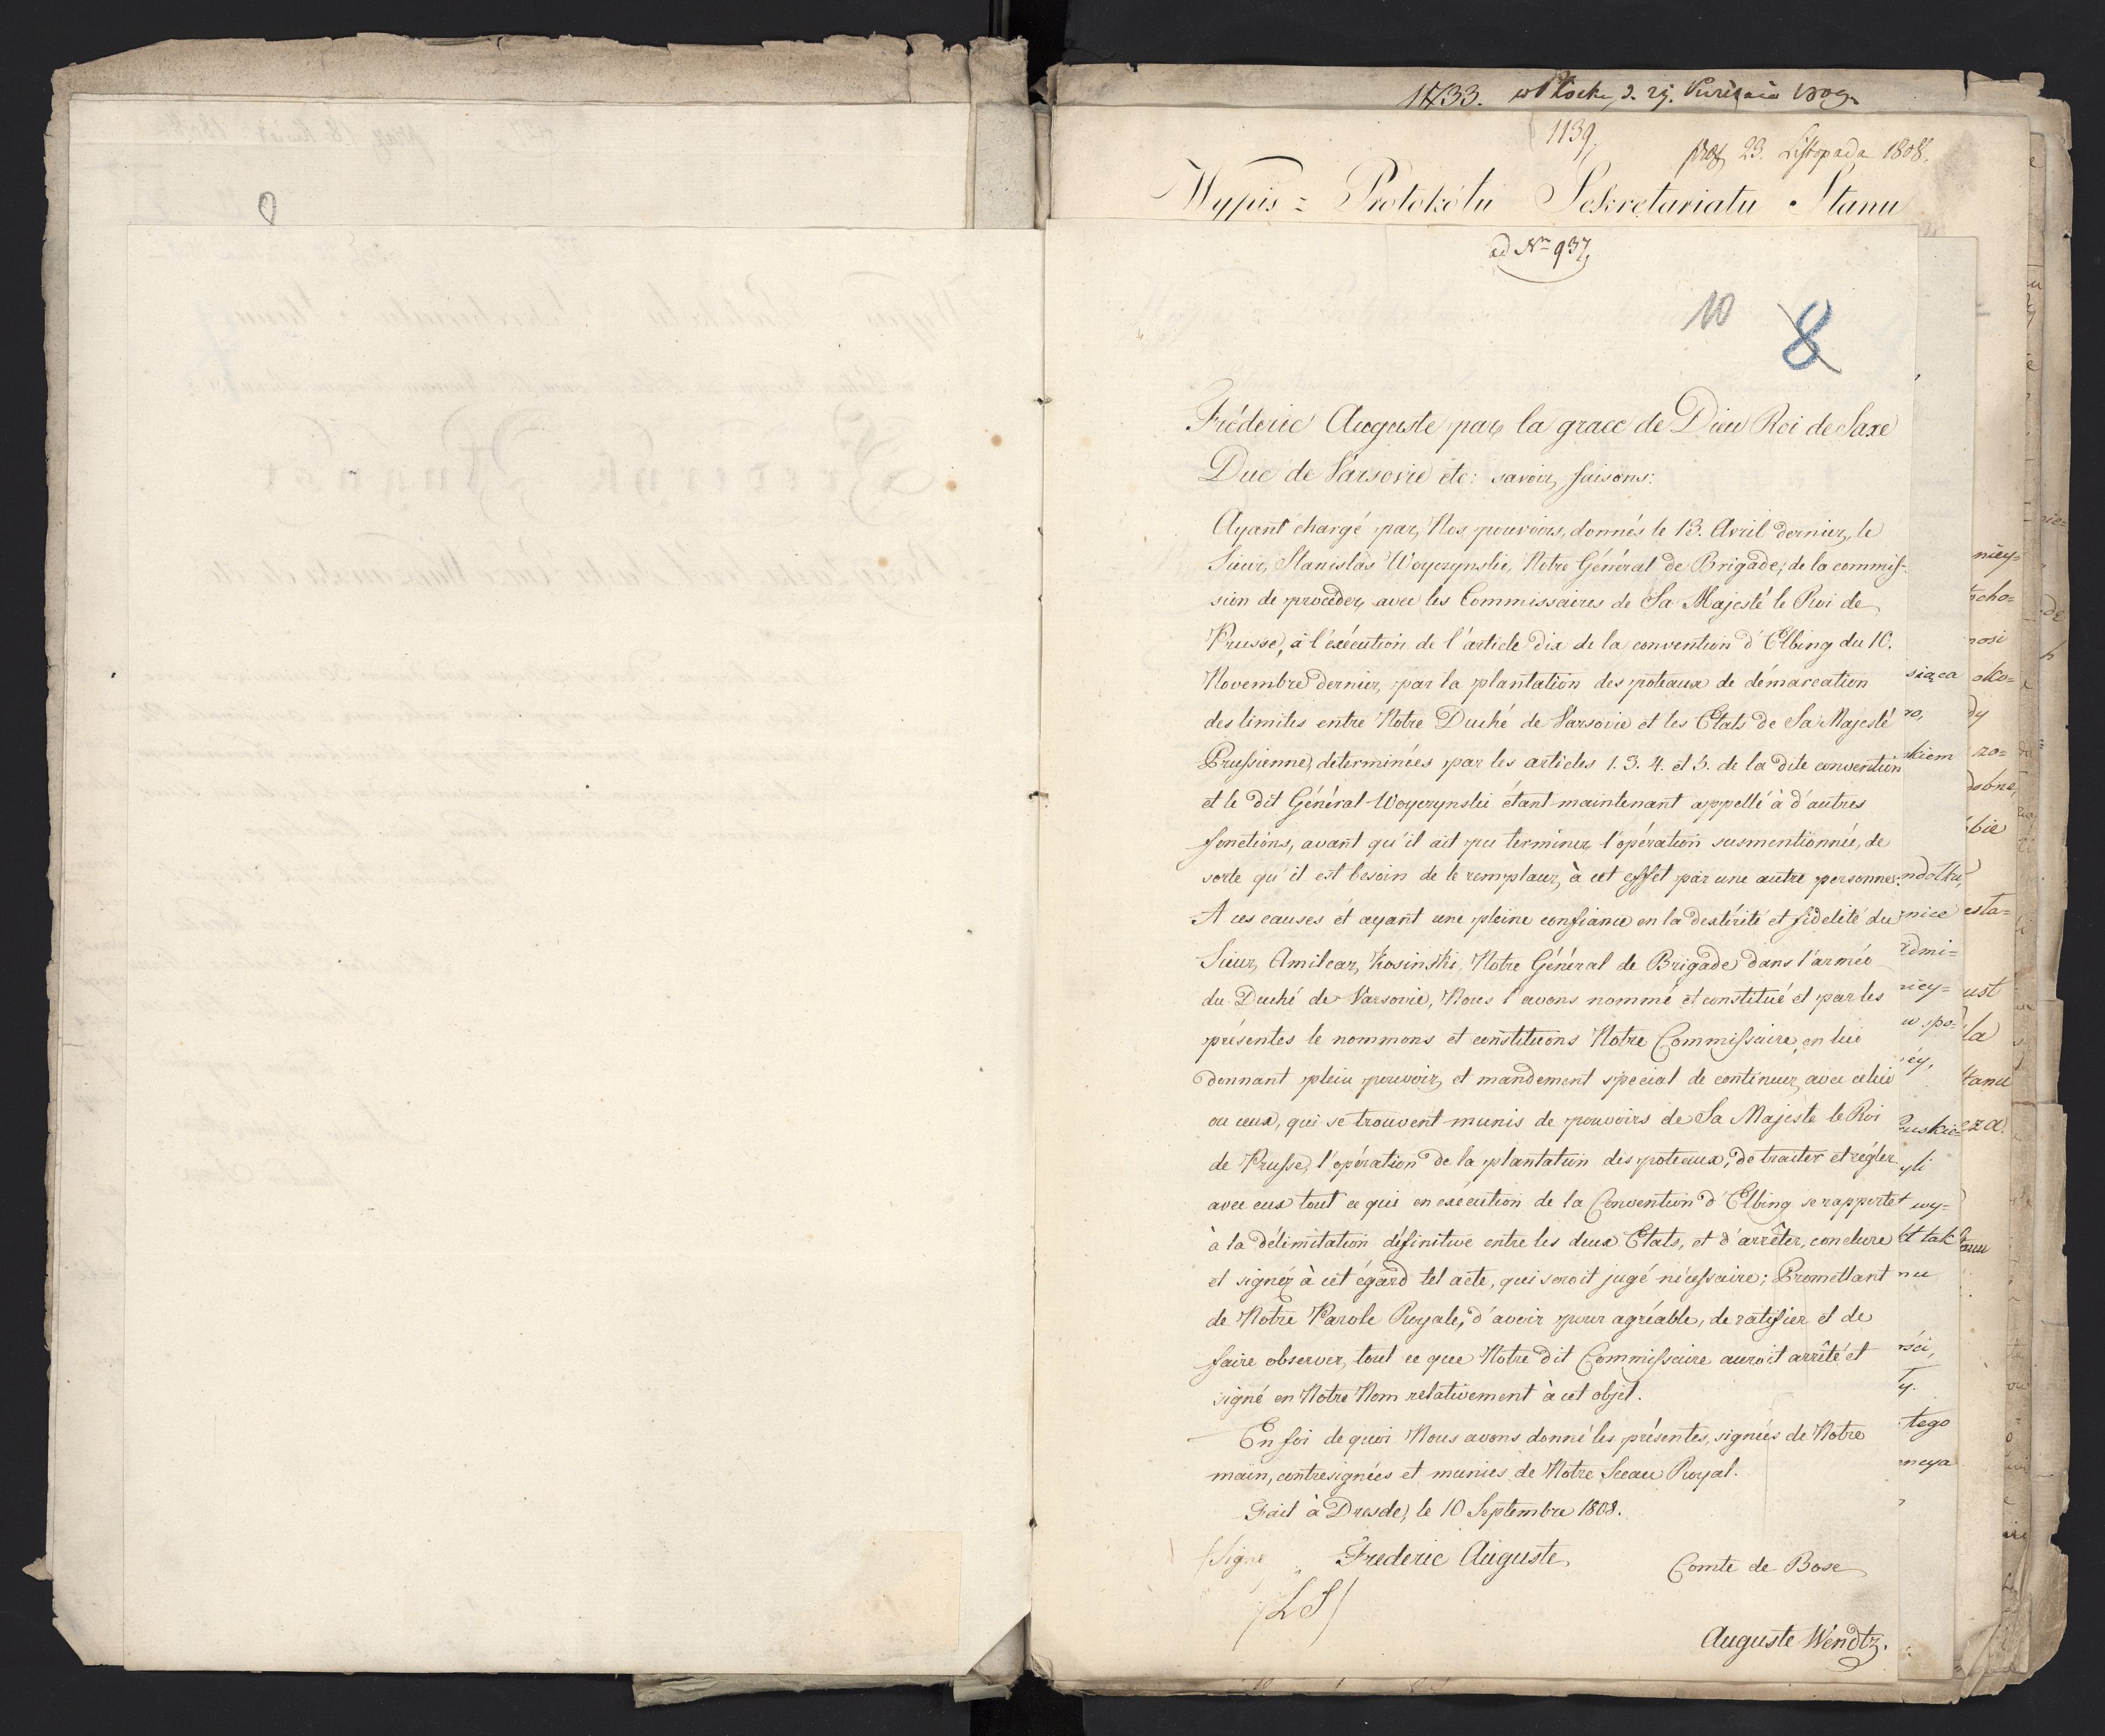 11733. w Płocku d. 29. 1809
1139.
23. Listopada 1808.
Wypis z Protokółu Sekretariatu Stanu
ad Nro 937,
10 8
Fréderic Auguste par la grace de Dieu Roi de Saxe
Duc de Varsovie etc: savoir faisons:
Ayant chargé par Nos pouvoirs, donnés le 13. Avril dernier, le
Sieur Stanislas Woyczynski, Notre Général de Brigade, de la commis-
sion de procéder avec les Commissaires de Sa Majesté le Roi de
Prusse, à l'exécution de l'article dix de la convention d'Elbing du 10.
Novembre dernier, par la plantation des poteaux de démarcation
des limites entre Notre Duché de Varsovie et les Etats de Sa Majesté
Prussienne, determinées par les articles 1. 3. 4. et 5. de la dite convention
et le dit Général Woyczynski étant maintenant appellé à d'autres
fonctions, avant qu'il ait pu terminer l'opération susmentionnée, de
sorte qu'il est besoin de le remplacer à cet effet par une autre personne:
A ces causes et ayant une pleine confiance en la dextérité et fidelité du
Sieur Amilcar Kosinski, Notre Général de Brigade dans l'armée
du Duché de Varsovie, Nous l'avons nommé et constitué et par les
présentes le nommons et constituons Notre Commissaire, en lui
donnant plein pouvoir et mandement special de continuer avec celui
ou ceux, qui se trouvent munis de pouvoirs de Sa Majeste le Roi
de Prusse, l'opération de la plantation des poteaux, de traiter et régler
avec eux tout ce qui en exécution de la Convention d'Elbing se rapporte
à la délimitation définitive entre les deux Etats, et d'arrêter, conclure
et signer à cet égard tel acte, qui seroit jugé nécessaire; Promettant
de Notre Parole Royale, d'avoir pour agréable, de ratifier et de
faire observer, tout ce que Notre dit Commissaire auroit arrêté et
signé en Notre Nom relativement à cet objet.
En foi de quoi Nous avons donné les présentes, signées de Notre
main, contresignées et munies de Notre Sceau Royal.
Fait à Dresde, le 10 Septembre 1808.
/Signe Frederic Auguste,
Comte de Bose
/LS/
Auguste Wendtz.